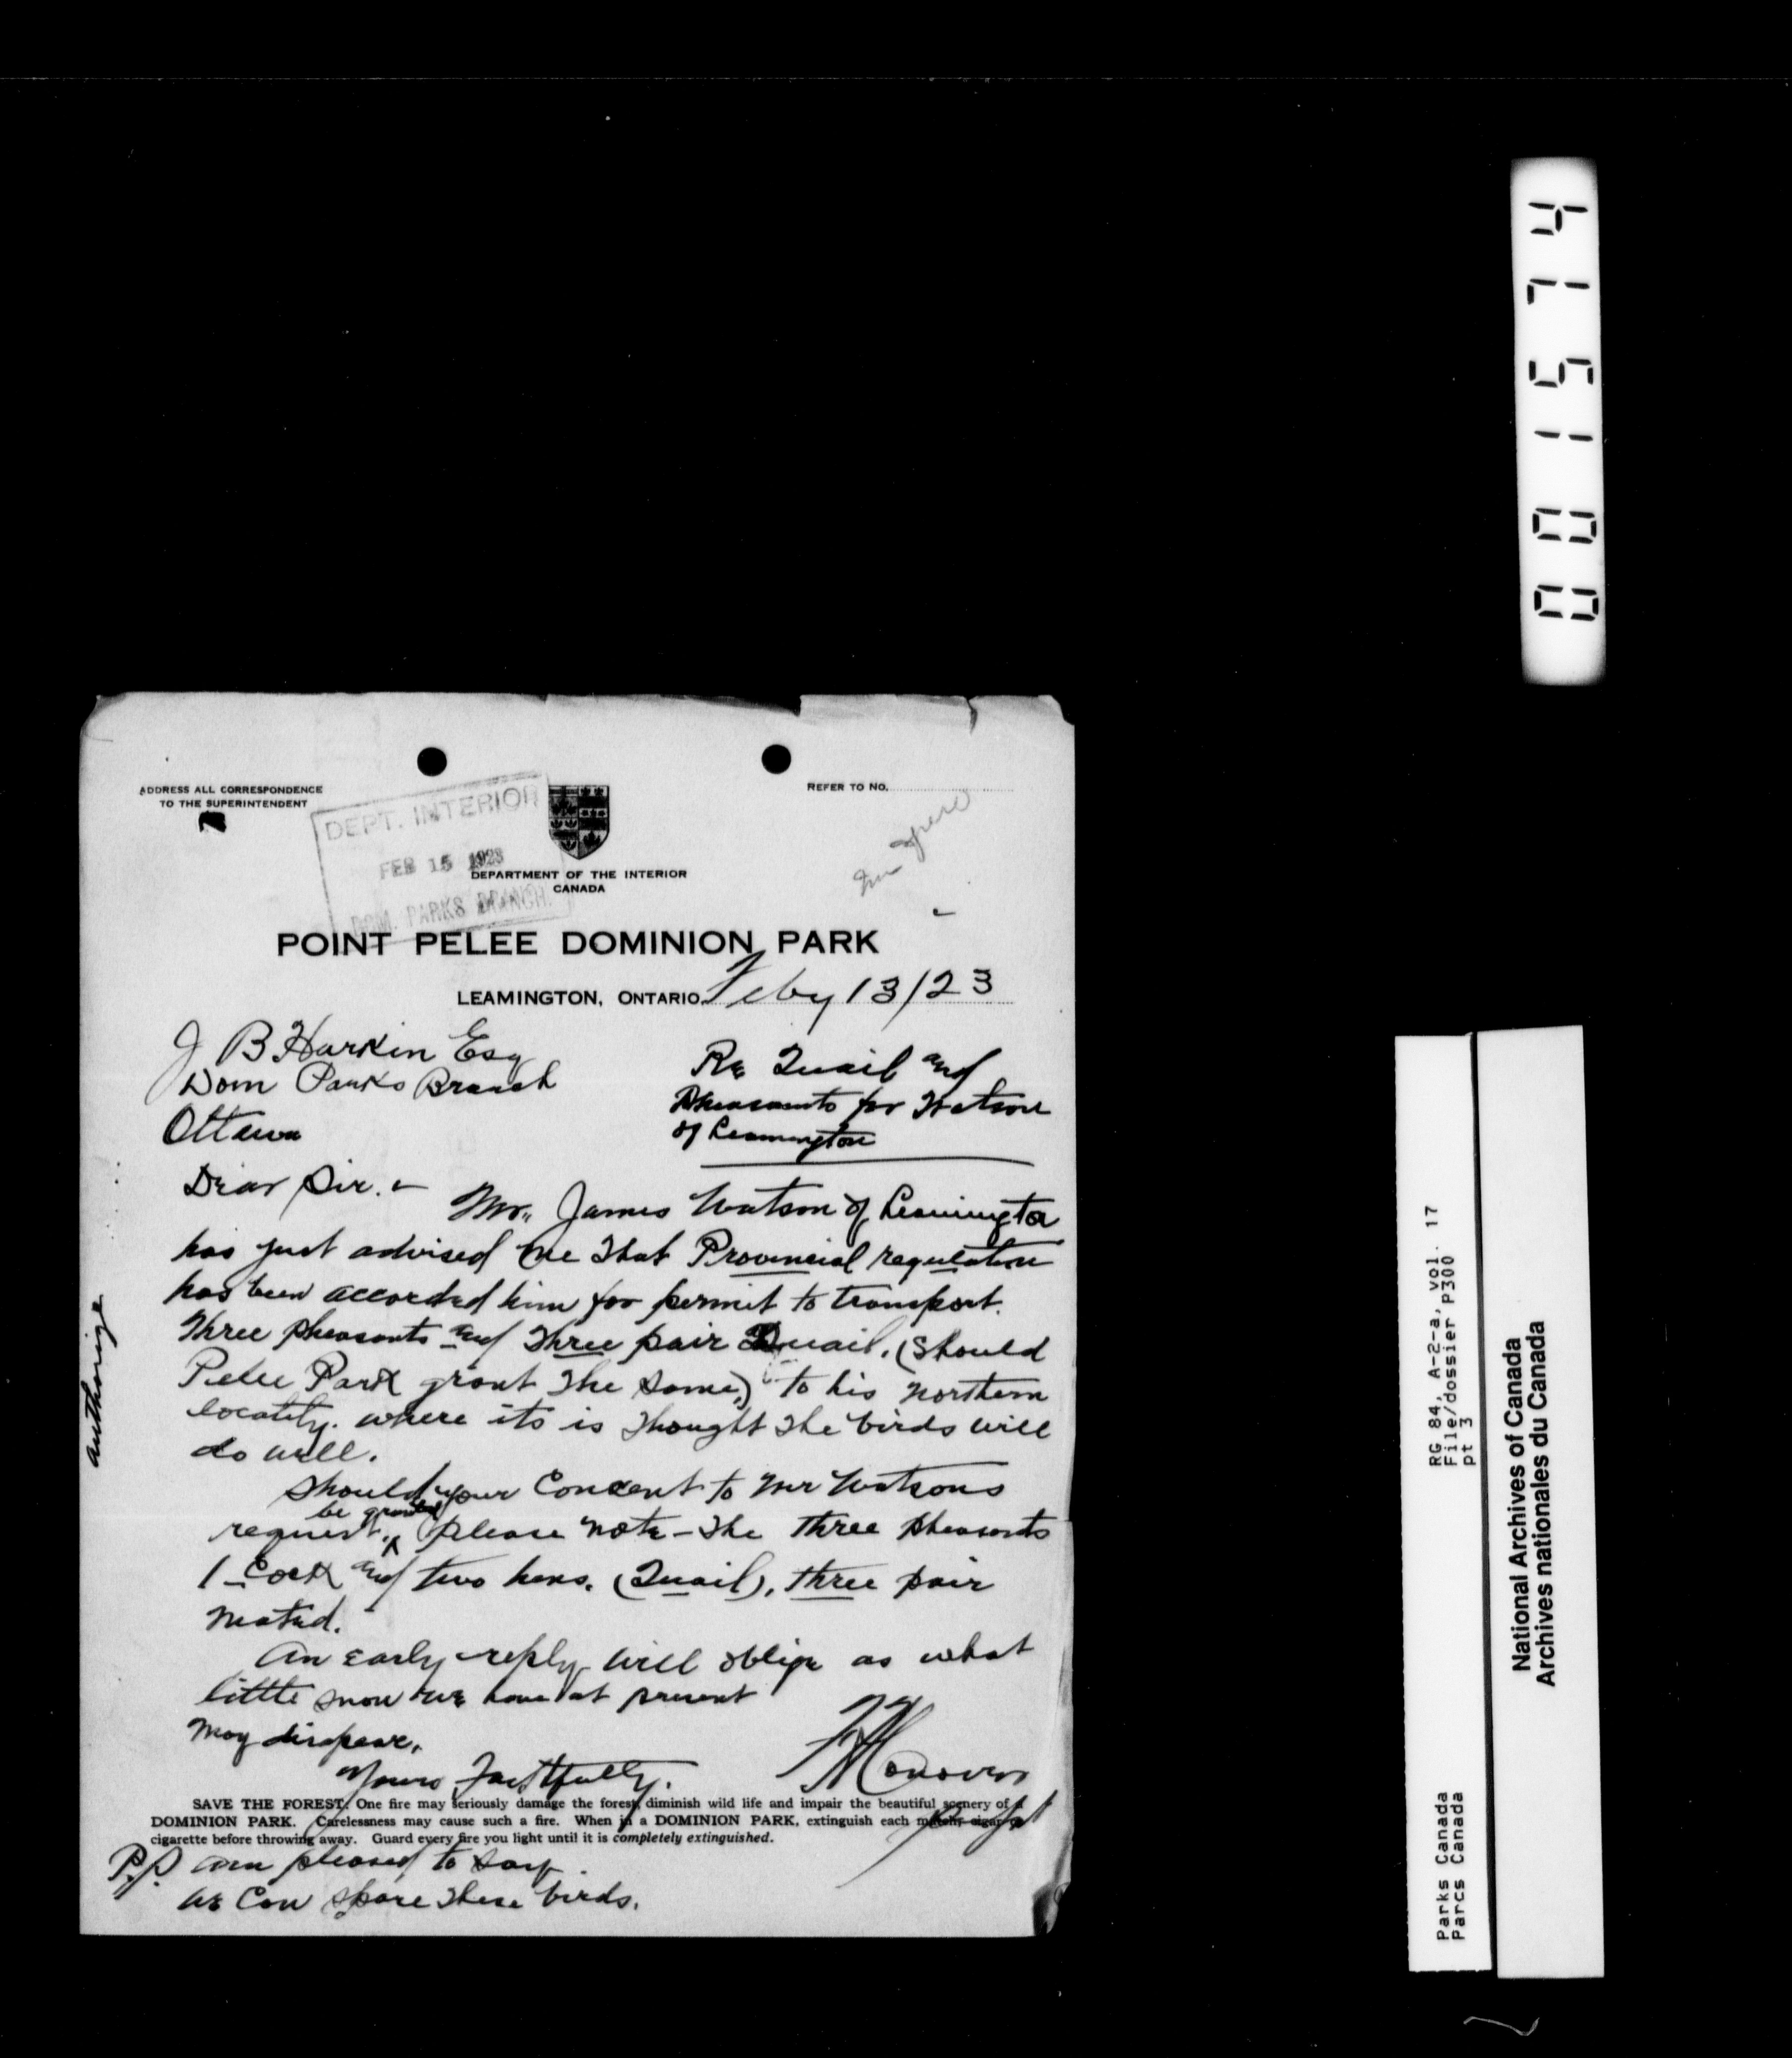 ADDRESS ALL CORRESPONDENCE
TO THE SUPERINTENDENT
REFER TO NO.
DEPT. INTERIOR
FEB 15 1923
DOM. PARKS BRANCH.
DEPARTMENT OF THE INTERIOR
CANADA
POINT PELEE DOMINION PARK
LEAMINGTON, ONTARIO, Feby 13/23
J B Harkin Esq
Dom Parks Branch
Ottawa
Re Quail and
Pheasants for Watson
of Leamington
Dear Sir. -
Mr. James Watson of Leamington
has just advised me that Provincial regulation
has been accorded him for permit to transport.
Three pheasants and Three pair Quail. (Should
Pelee Park grant the same) to his northern
locality. where its is thought the birds will
do well.
Should your Concent to Mr Watsons
request, be granted please note - the three pheasants
1 - Cock and two hens. (Quail), three pair
mated.
An early reply will oblige as what
little snow we have at present
may disapear,
Yours Faithfully.
F H Conover
Supt
SAVE THE FOREST: One fire may seriously damage the forest, diminish wild life and impair the beautiful scenery of a
DOMINION PARK. Carelessness may cause such a fire. When in a DOMINION PARK, extinguish each match, cigar or
cigarette before throwing away. Guard every fire you light until it is completely extinguished.
P.P. am pleased to say
we Can spare these birds.
authorize
001574
RG 84, A-2-a, vol. 17
File/dossier P300
pt 3
Parks Canada
Parcs Canada
National Archives of Canada
Archives nationales du Canada